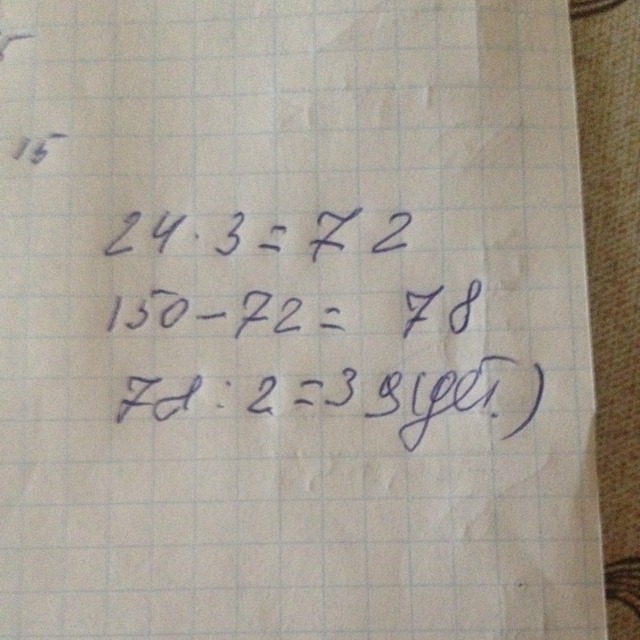 15
24·3=72
150-72= 78
78:2=39(дет.)